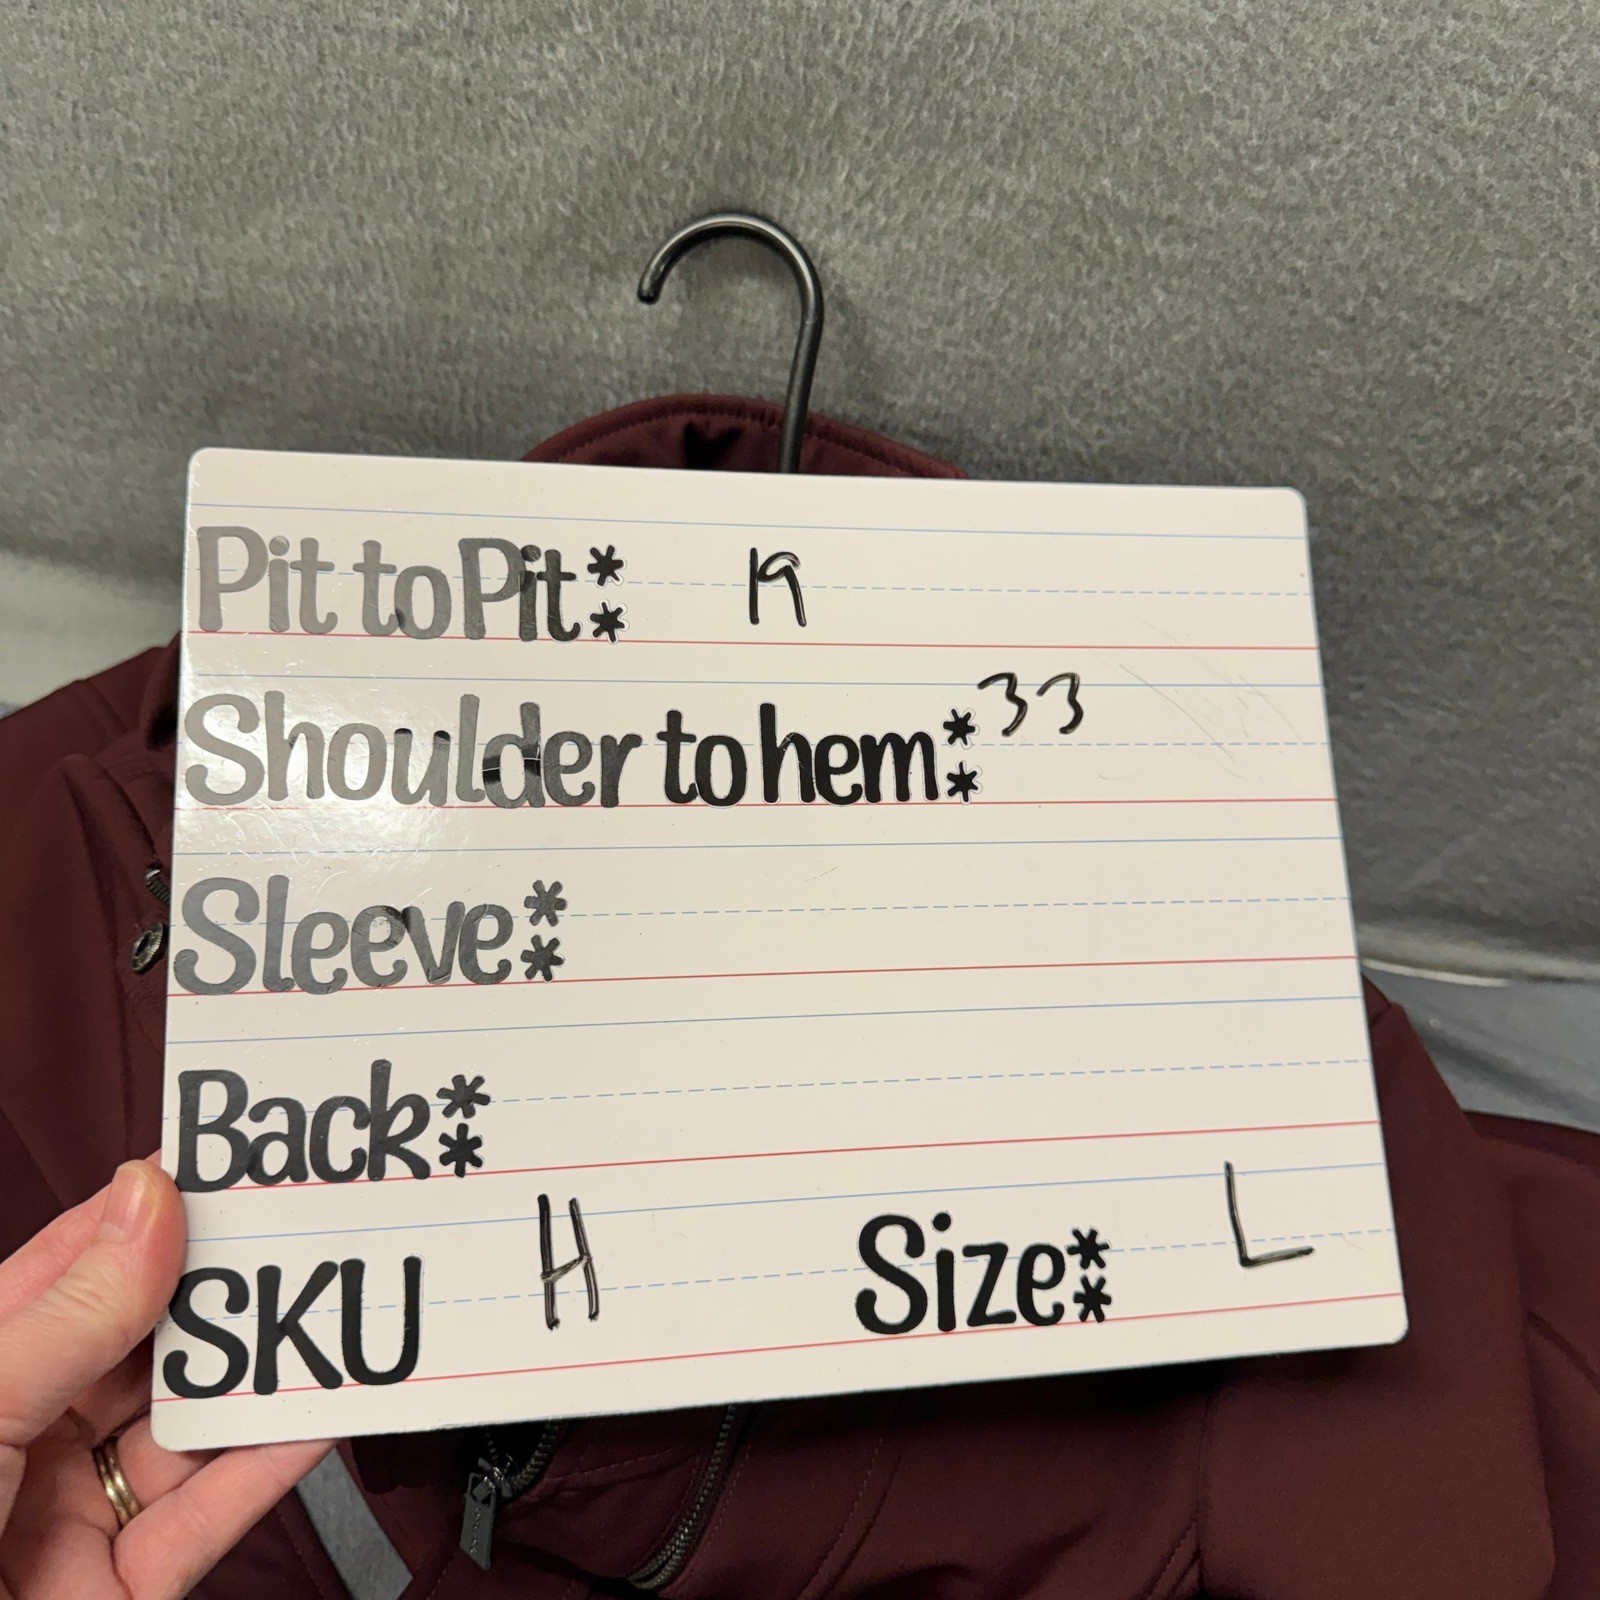 Pit to Pit: 19
Shoulder to hem: 33
Sleeve:
Back:
SKU H Size: L